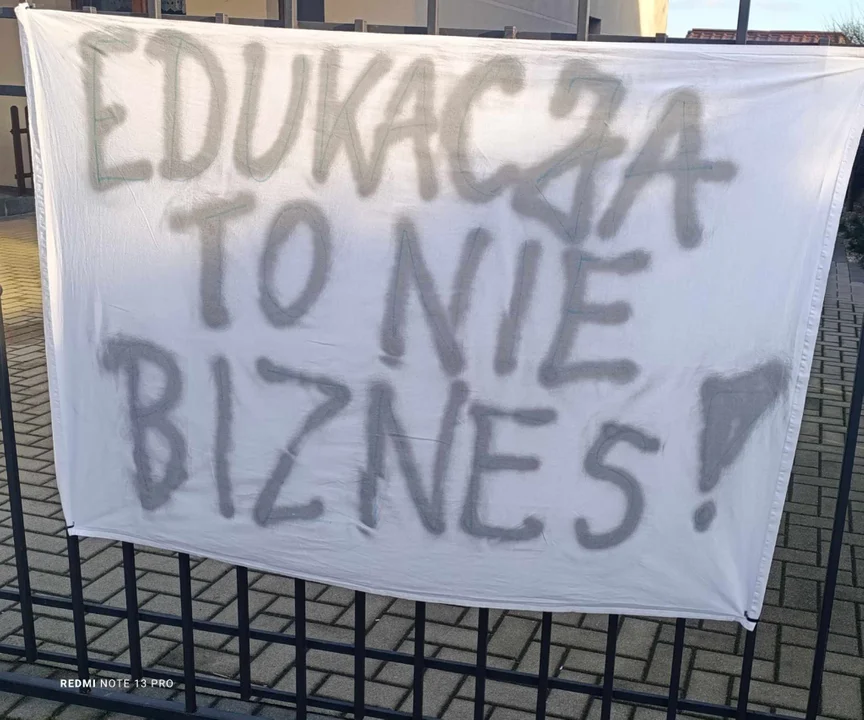 EDUKACJA
TO NIE
BIZNES!
REDMI NOTE 13 PRO